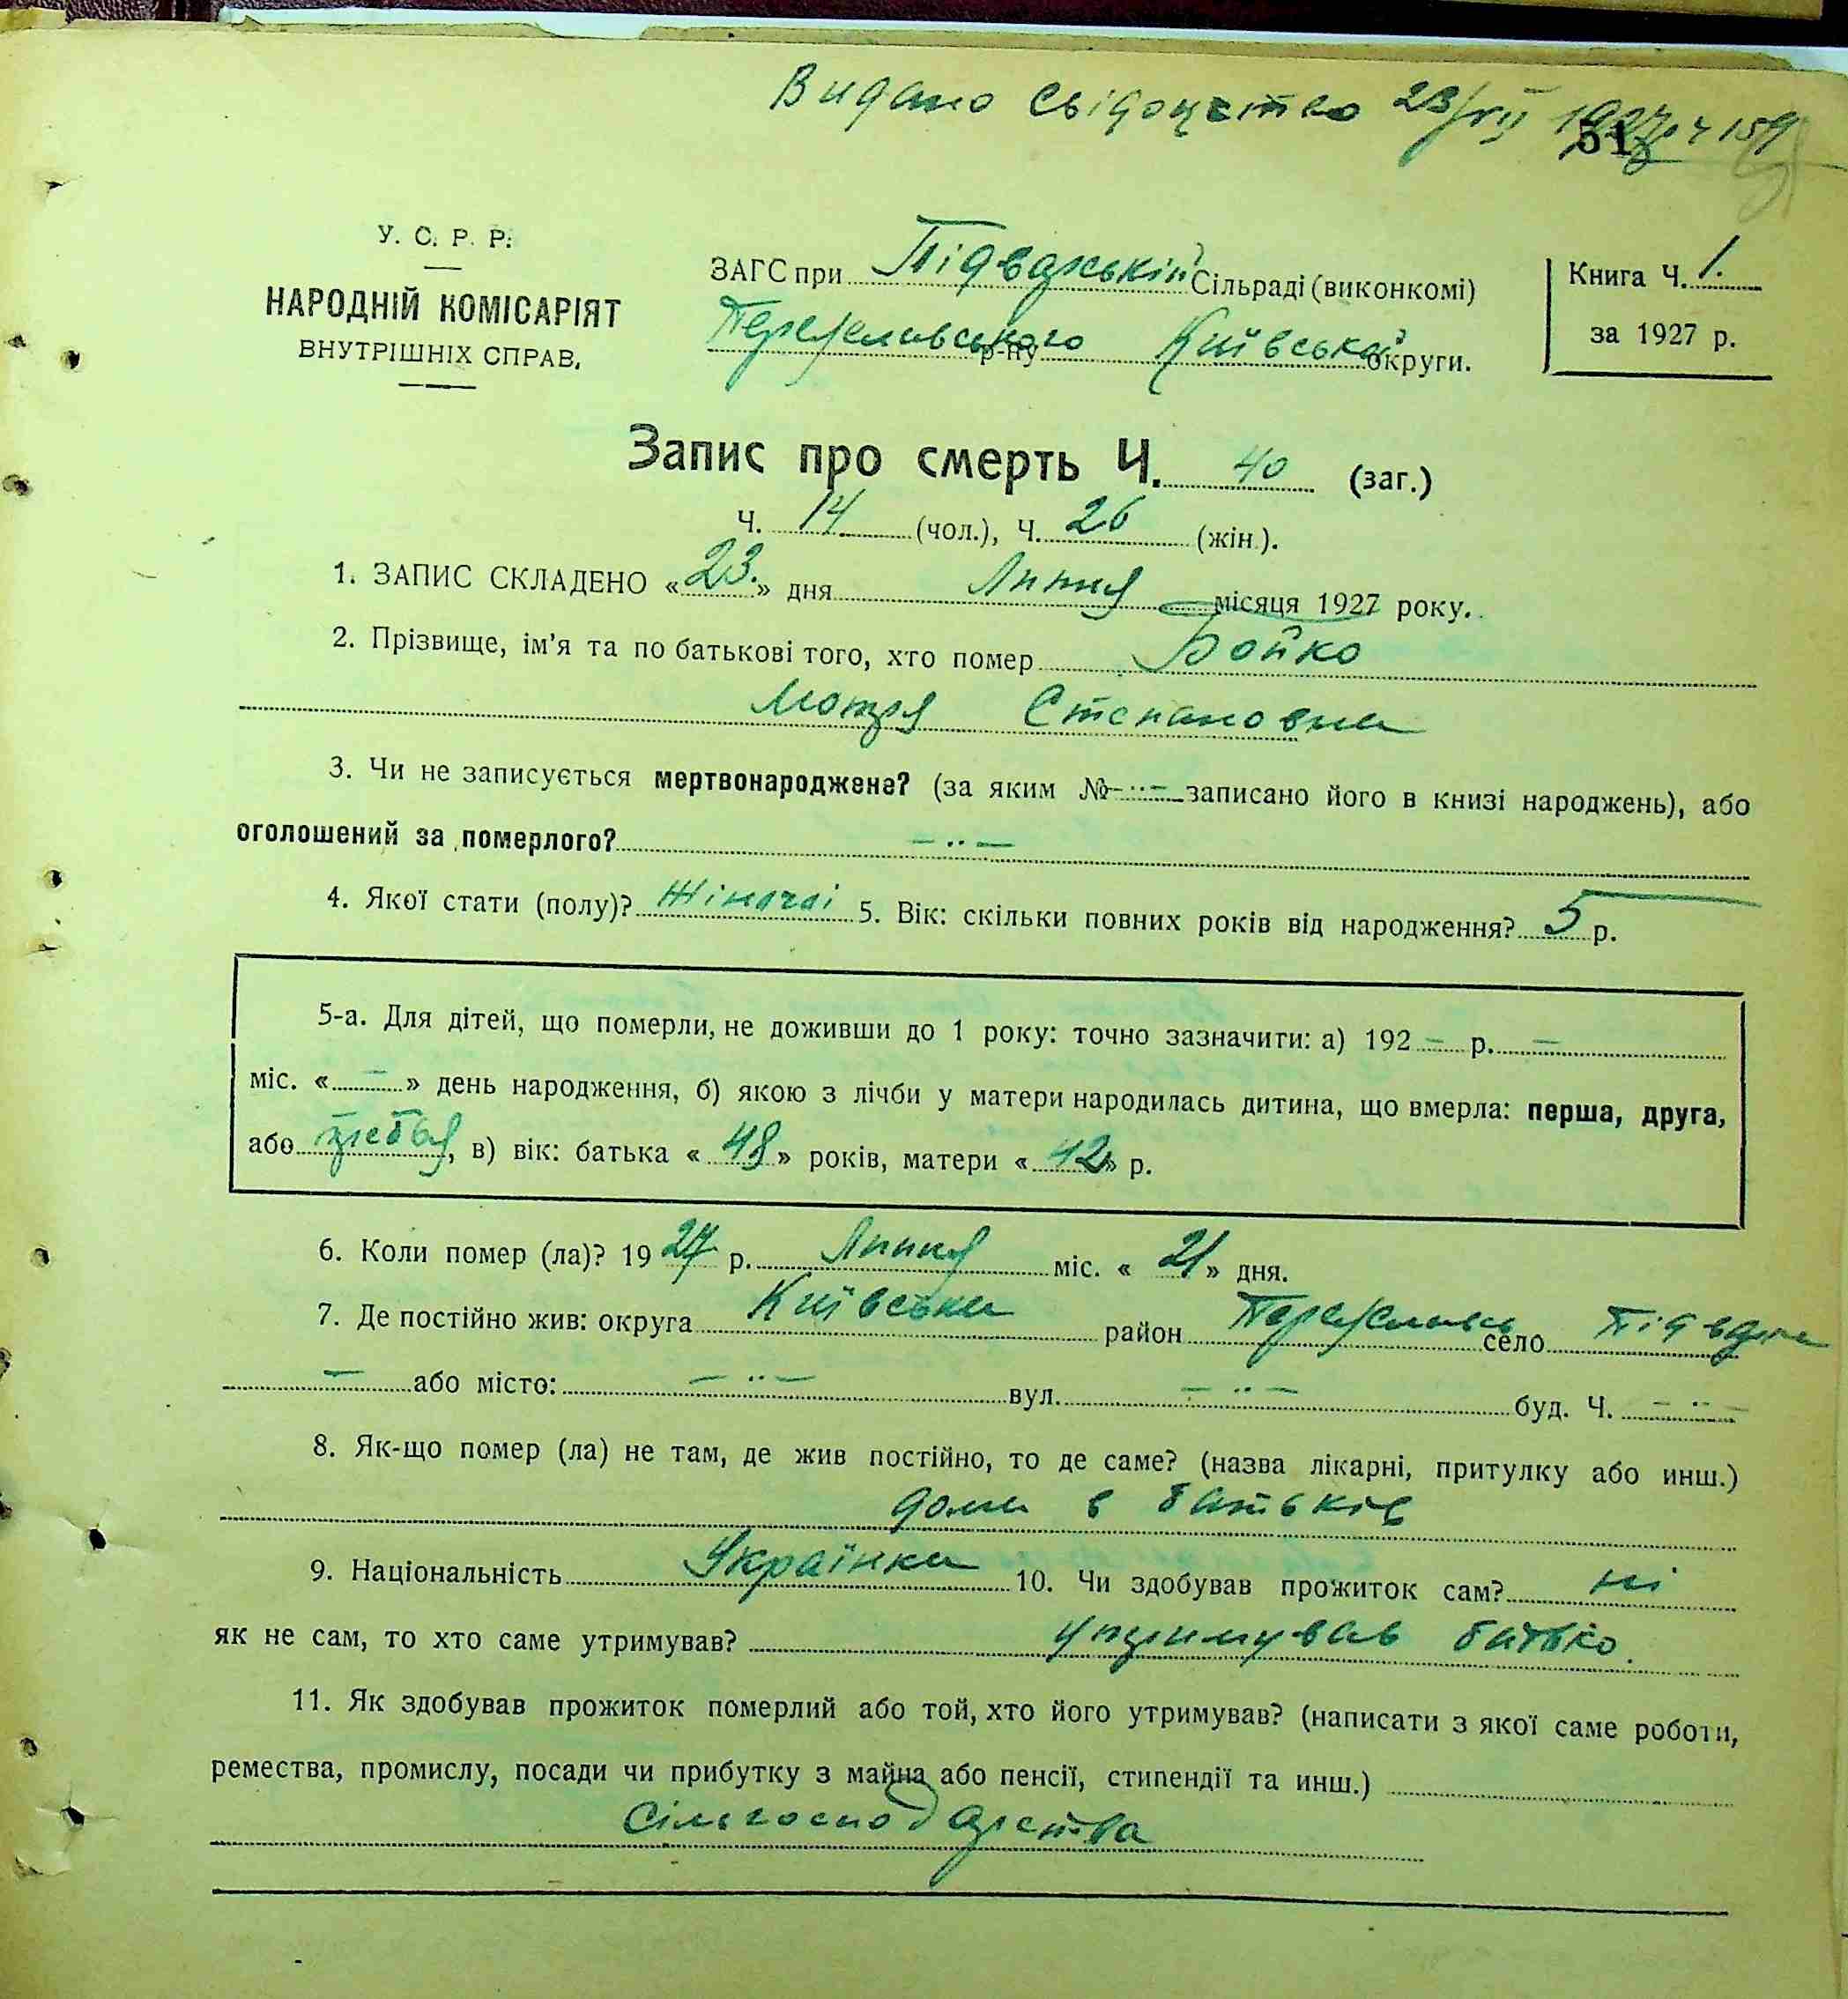 Видано свідоцтво 23/VII 1927 р Ч 159
51
У. С. Р. Р.
НАРОДНІЙ КОМІСАРІЯТ
ВНУТРІШНІХ СПРАВ.
ЗАГС при Підварській Сільраді (виконкомі)
Переяславського р-ну Київської округи.
Книга Ч. 1.
за 1927 р.
Запис про смерть Ч. 40 (заг.)
Ч. 14 (чол.), Ч. 26 (жін.).
1. ЗАПИС СКЛАДЕНО «23.» дня Липня місяця 1927 року.
2. Прізвище, ім'я та по батькові того, хто помер Бойко
Мотря Степановна
3. Чи не записується мертвонароджене? (за яким № -··- записано його в книзі народжень), або
оголошений за померлого? -··-
4. Якої стати (полу)? Жіночої 5. Вік: скільки повних років від народження? 5 р.
5-а. Для дітей, що померли, не доживши до 1 року: точно зазначити: а) 192 - р. -
міс. « - » день народження, б) якою з лічби у матери народилась дитина, що вмерла: перша, друга,
або , в) вік: батька « 48 » років, матери « 42 » р.
6. Коли помер (ла)? 1927 р. Липня міс. « 21 » дня.
7. Де постійно жив: округа Київська район Переяславсь село Підварки
- або місто: -··- вул. -··- буд. Ч. -··-
8. Як-що помер (ла) не там, де жив постійно, то де саме? (назва лікарні, притулку або инш.)
дома в батьків
9. Національність Українка 10. Чи здобував прожиток сам? ні
як не сам, то хто саме утримував? утримував батько.
11. Як здобував прожиток померлий або той, хто його утримував? (написати з якої саме роботи,
ремества, промислу, посади чи прибутку з майна або пенсії, стипендії та инш.)
Сільгосподарства